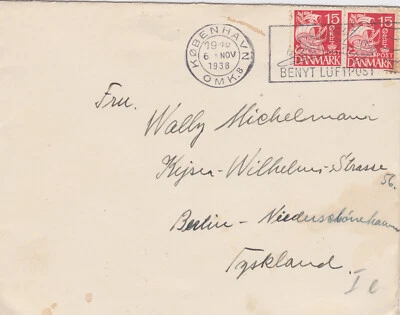 KØBENHAVN
19
6 NOV
1938
OMK.8
BENYT LUFTPOST
15 ØRE POST DANMARK
15 ØRE POST DANMARK
Fru.
Wally Michelmann
Kijser-Wilhelms-Strasse
56.
Berlin-Niederschönehausen
Tyskland.
I e